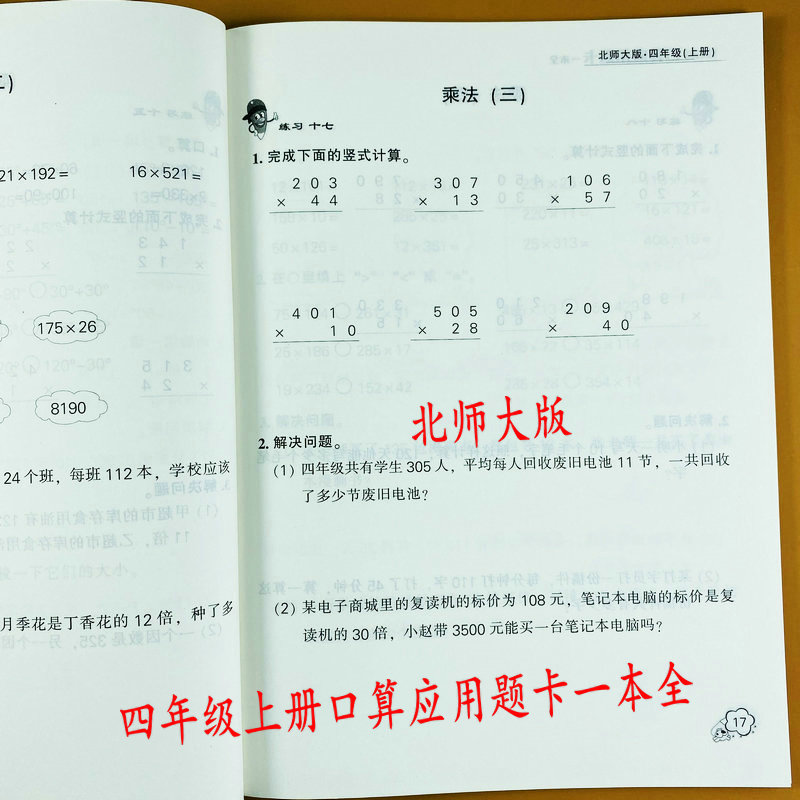 二)
21×192=
16×521=
175×26
8190
24个班，每班112本，学校应该
月季花是丁香花的12倍，种了多
北师大版·四年级(上册)
乘法（三）
练习十七
1. 完成下面的竖式计算。
203 307 106
× 44 × 13 × 57
401 505 209
× 10 × 28 × 40
北师大版
2. 解决问题。
(1) 四年级共有学生305人，平均每人回收废旧电池11节，一共回收
了多少节废旧电池？
(2) 某电子商城里的复读机的标价为108元，笔记本电脑的标价是复
读机的30倍，小赵带3500元能买一台笔记本电脑吗？
四年级上册口算应用题卡一本全
17